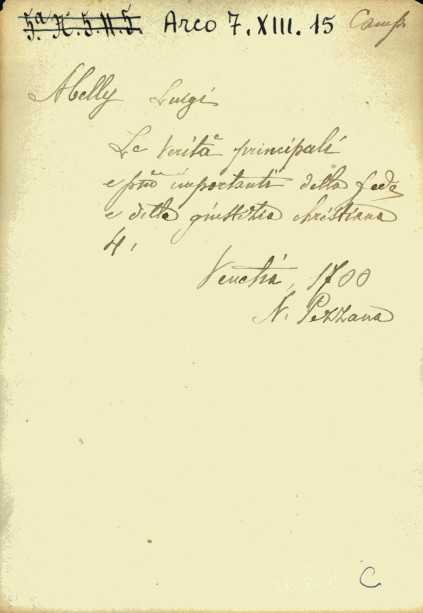 5.a H. 5. II. 5. Arco 7.XIII.15 Camp.
Abelly Luigi
Le Verità principali
e più importanti della fede
e della giustizia christiana
4,
Venetia, 1700
N. Pezzana
C